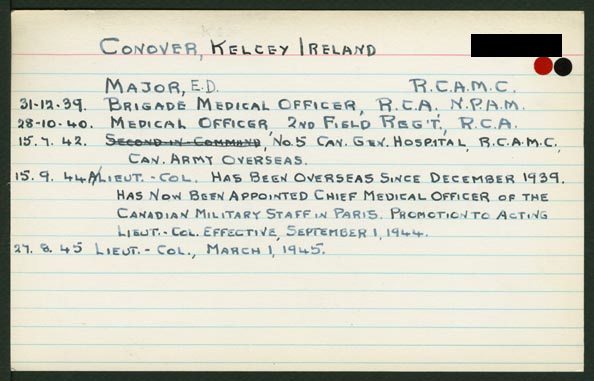 CONOVER, KELCEY IRELAND
MAJOR, E.D. R.C.A.M.C.
31-12-39. BRIGADE MEDICAL OFFICER, R.C.A. N.P.A.M.
28-10-40. MEDICAL OFFICER, 2ND FIELD REG'T., R.C.A.
15.7.42. SECOND-IN-COMMAND, NO.5 CAN. GEN. HOSPITAL, R.C.A.M.C.,
CAN. ARMY OVERSEAS.
15.9.44 A/LIEUT.-COL. HAS BEEN OVERSEAS SINCE DECEMBER 1939.
HAS NOW BEEN APPOINTED CHIEF MEDICAL OFFICER OF THE
CANADIAN MILITARY STAFF IN PARIS. PROMOTION TO ACTING
LIEUT.-COL. EFFECTIVE, SEPTEMBER 1, 1944.
27.8.45 LIEUT.-COL., MARCH 1, 1945.